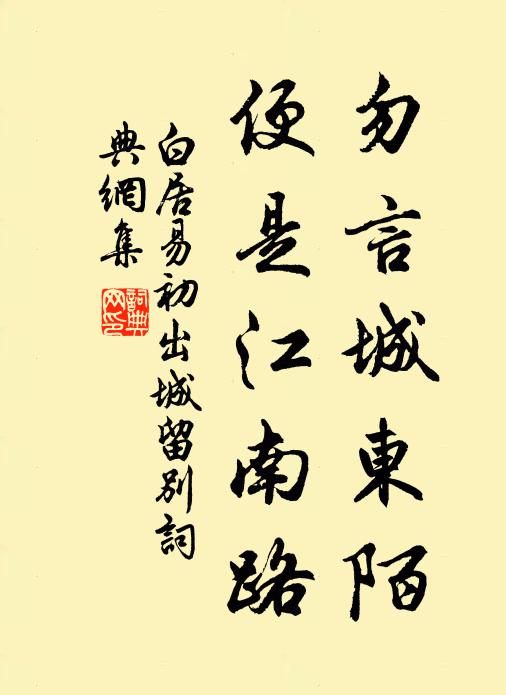 勿言城東陌
便是江南路
白居易初出城留別詞
典網集
詞典网印